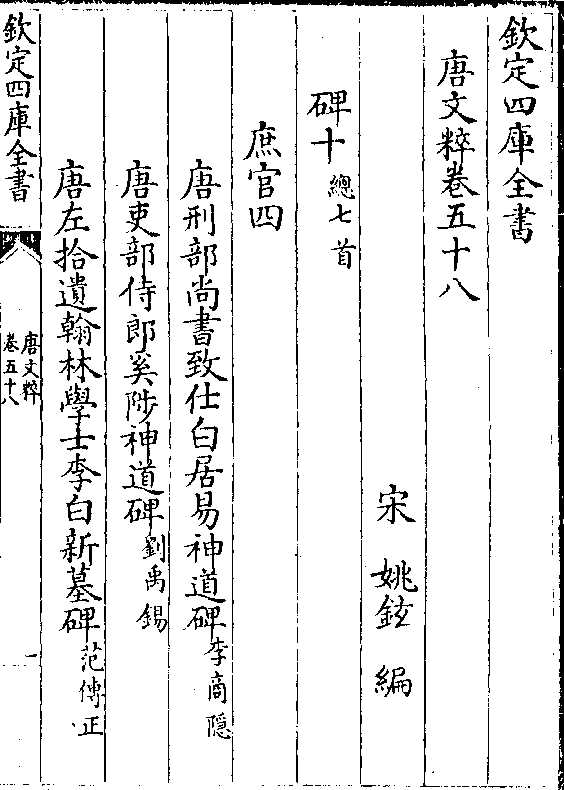 欽定四庫全書
唐文粹卷五十八
宋 姚鉉 編
碑十 總七首
庶官四
唐刑部尚書致仕白居易神道碑 李商隱
唐吏部侍郎奚陟神道碑 劉禹錫
唐左拾遺翰林學士李白新墓碑 范傳正
欽定四庫全書
唐文粹
卷五十八
一